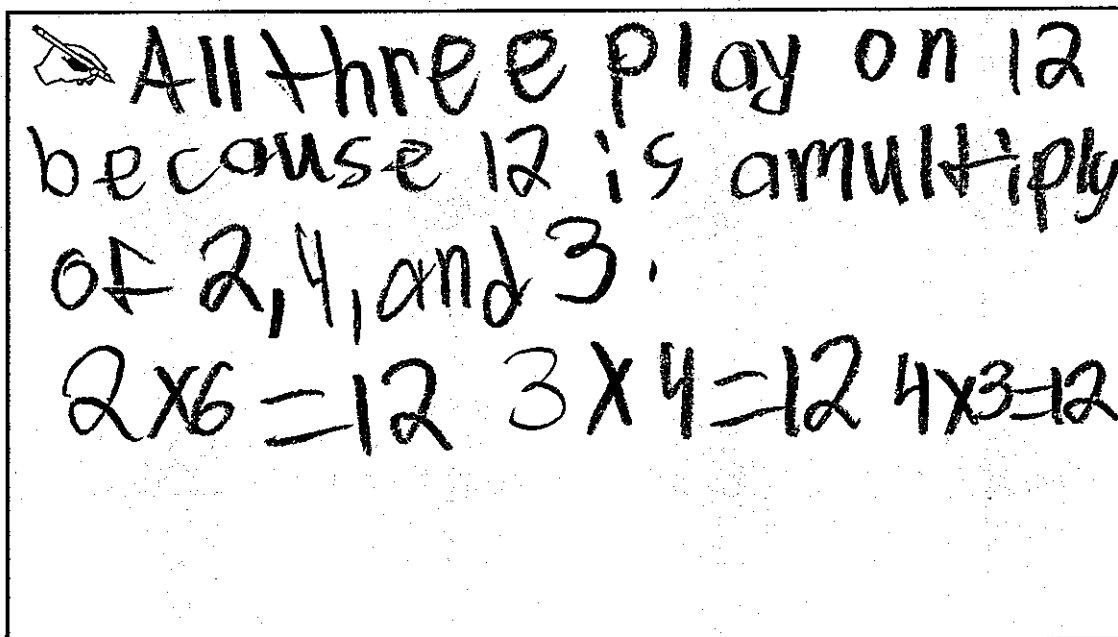 All three play on 12
because 12 is amultiply
of 2,4, and 3.
2x6=12 3x4=12 4x3=12